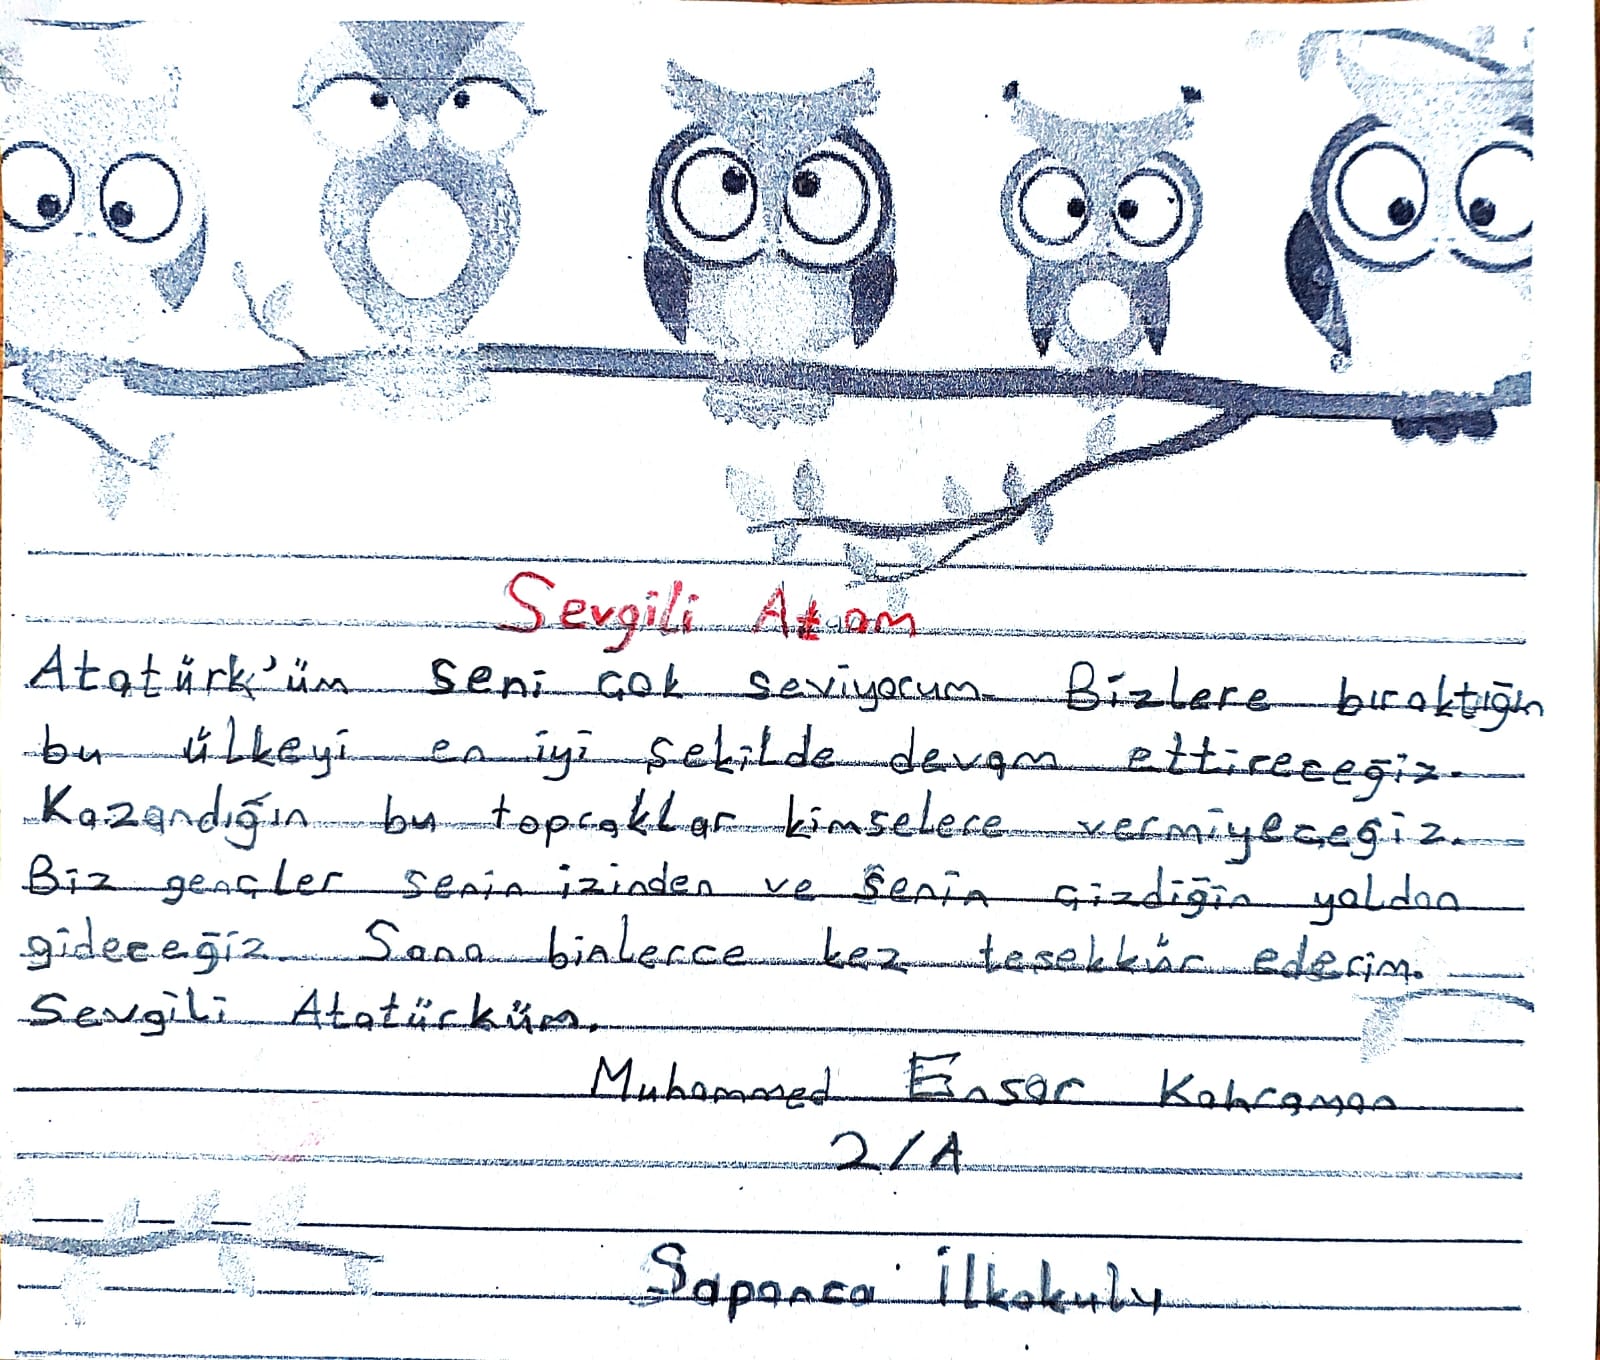 Sevgili Atam
Atatürk'üm seni çok seviyorum. Bizlere bıraktığın
bu ülkeyi en iyi şekilde devam ettireceğiz.
Kazandığın bu topraklar kimselere vermiyeceğiz.
Biz gençler senin izinden ve senin çizdiğin yoldan
gideceğiz. Sana binlerce kez teşekkür ederim.
Sevgili Atatürküm.
Muhammed Ensar Kahraman
2/A
Sapanca İlkokulu